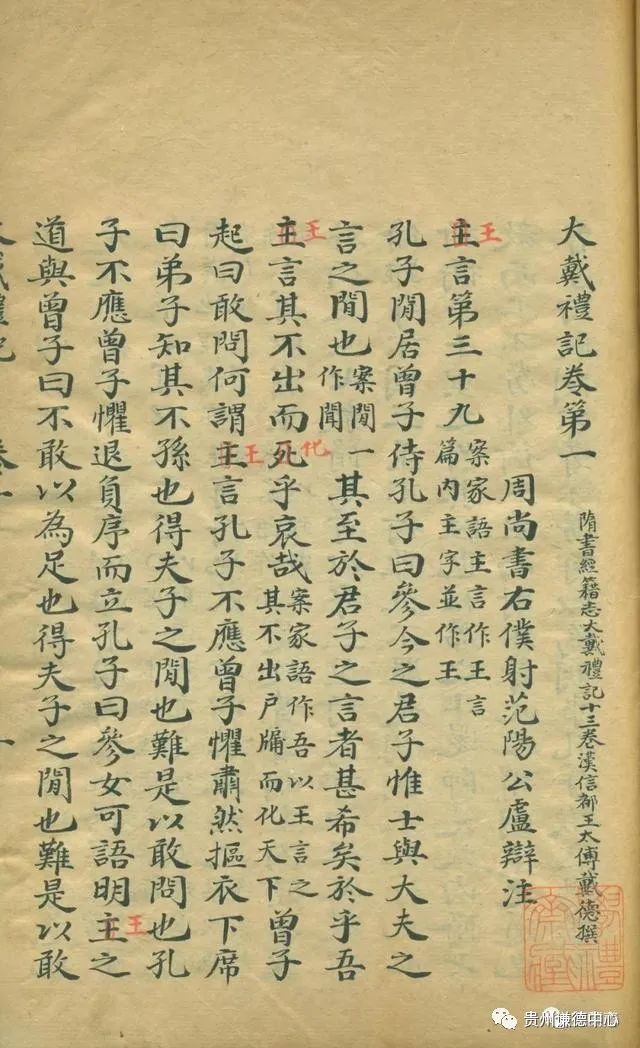 大戴禮記卷第一
隋書經籍志大戴禮記十三卷漢信都王太傅戴德撰
周尚書右僕射范陽公盧辯注
主言第三十九
王
案家語主言作王言
篇内主字並作王
孔子閒居曾子侍孔子曰參今之君子惟士與大夫之
言之閒也
案閒一
作聞
其至於君子之言者甚希矣於乎吾
主言其不出而死乎哀哉
王
化
案家語作吾以王言之
其不出戶牖而化天下
曾子
起曰敢問何謂主言孔子不應曾子懼肅然摳衣下席
王
曰弟子知其不孫也得夫子之閒也難是以敢問也孔
子不應曾子懼退負序而立孔子曰參女可語明主之
王
道與曾子曰不敢以為足也得夫子之閒也難是以敢
貴州谦德中心